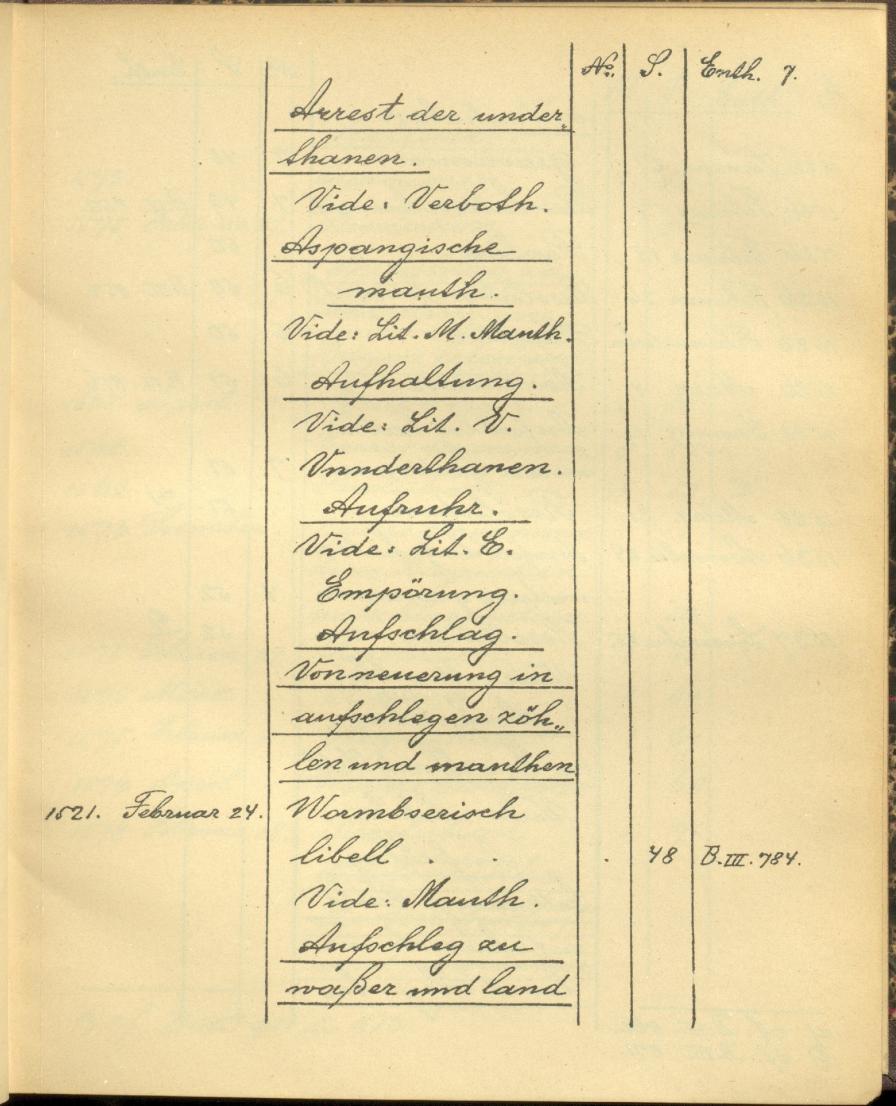 No. S. Enth. 7.
Arrest der under„
thanen.
Vide: Verboth.
Aspangische
mauth.
Vide: Lit. M. Mauth.
Aufhaltung.
Vide: Lit. V.
Vnnderthanen.
Aufruhr.
Vide: Lit. E.
Empörung.
Aufschlag.
Von neuerung in
aufschlegen zöh„
len und mauthen
1521. Februar 24. Wormbserisch
libell . . . 48 B.III.784.
Vide: Mauth.
Aufschleg zu
waßer und land